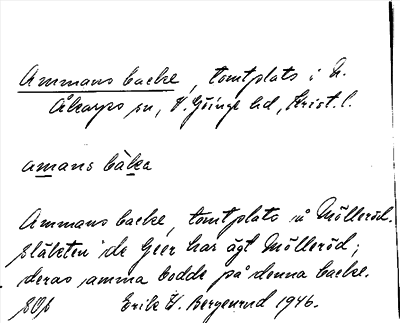 Ammans backe, tomtplats i N.
Åkarps sn, V. Göinge hd, Krist. l.
amans baka
Ammans backe, tomtplats å Mölleröd.
släkten de Geer har ägt Mölleröd;
deras amma bodde på denna backe.
Erik V. Bergenrud 1946.